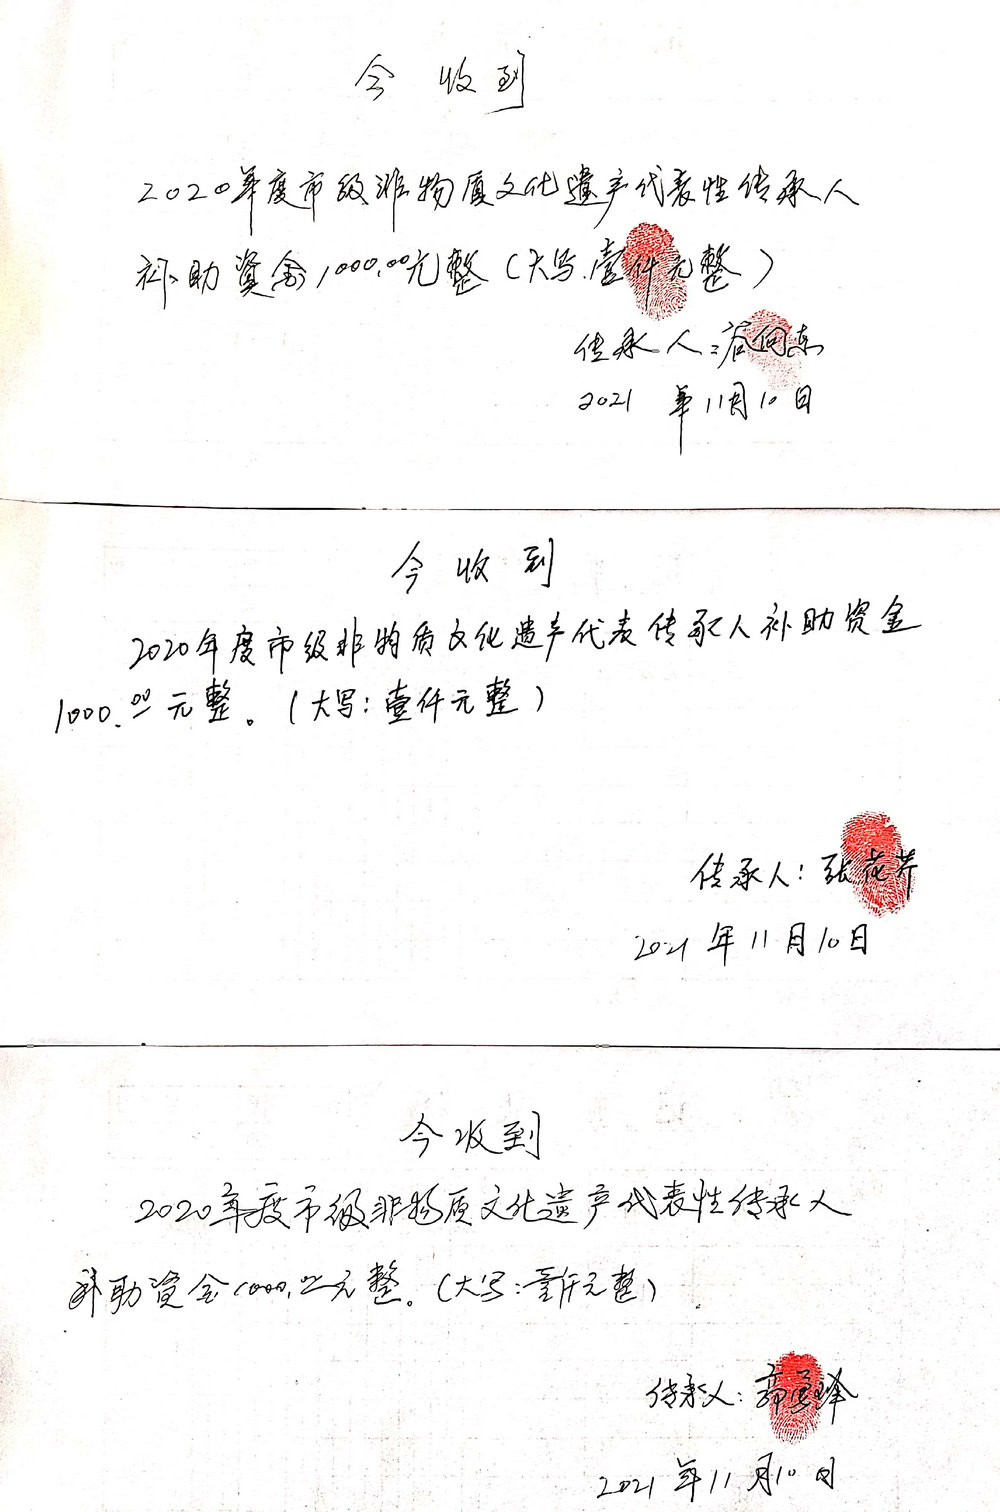 今收到
2020年度市级非物质文化遗产代表性传承人
补助资金1000.00元整(大写:壹仟元整)
传承人:向东
2021年11月10日
今收到
2020年度市级非物质文化遗产代表传承人补助资金
1000.00元整。(大写:壹仟元整)
传承人:张花芹
2021年11月10日
今收到
2020年度市级非物质文化遗产代表性传承人
补助资金1000.00元整。(大写:壹仟元整)
传承人:
2021年11月10日